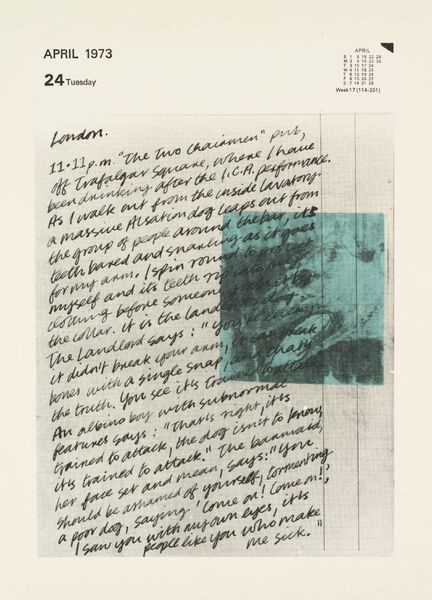 APRIL 1973
24 Tuesday
APRIL
S 1 8 15 22 29
M 2 9 16 23 30
T 3 10 17 24
W 4 11 18 25
T 5 12 19 26
F 6 13 20 27
S 7 14 21 28
Week 17 (114-251)
London.
11.11 p.m. "The Two Chairmen" pub,
off Trafalgar Square, where I have
been drinking after the I.C.A. performance.
As I walk out from the inside lavatory
a massive Alsation dog leaps out from
the group of people around the bar, its
teeth bared and snarling as it goes
for my arm. I spin round to
myself and its teeth rip into my
clothing before someone it by
the collar. It is the landlord's dog.
The Landlord says: "You're lucky
it didn't break your arm, it can break
bones with a single snap, and that's
the truth. You see it's trained to attack."
An albino boy with subnormal
features says: "That's right, it's
trained to attack, the dog isn't to know,
it's trained to attack." The barmaid,
her face set and mean, says: "You
should be ashamed of yourself, tormenting
a poor dog, saying 'Come on! Come on!',
I saw you with my own eyes, it's
people like you who make
me sick."